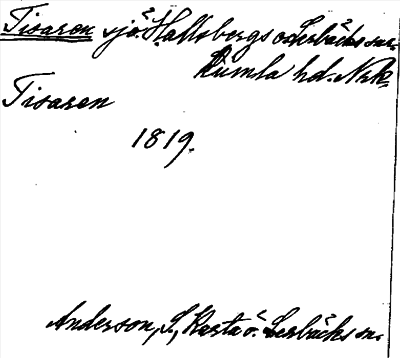 Tisaren sjö. Hallsbergs o. Lerbäcks snr.
Kumla hd. Nrk.
Tisaren
1819.
Anderson, S., Karta ö. Lerbäcks sn.